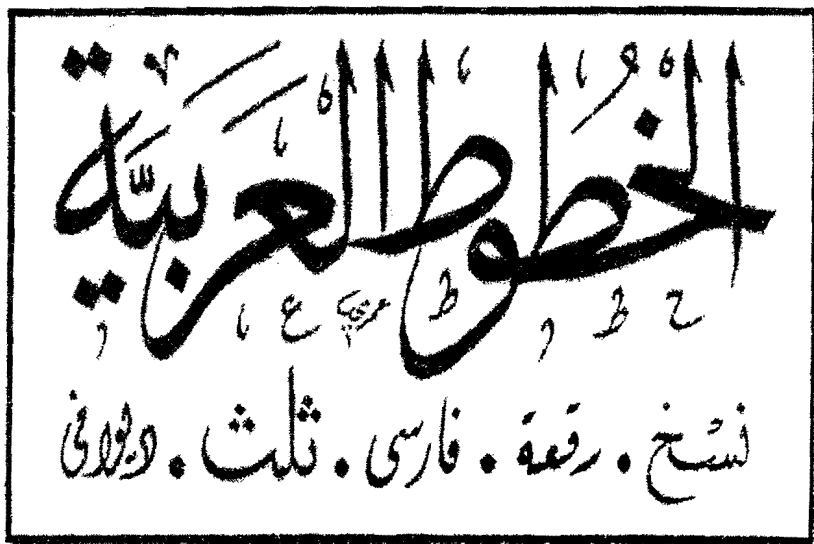 الخطوط العربيَّة
نسخ . رقعة . فارسى . ثلث . ديوانى